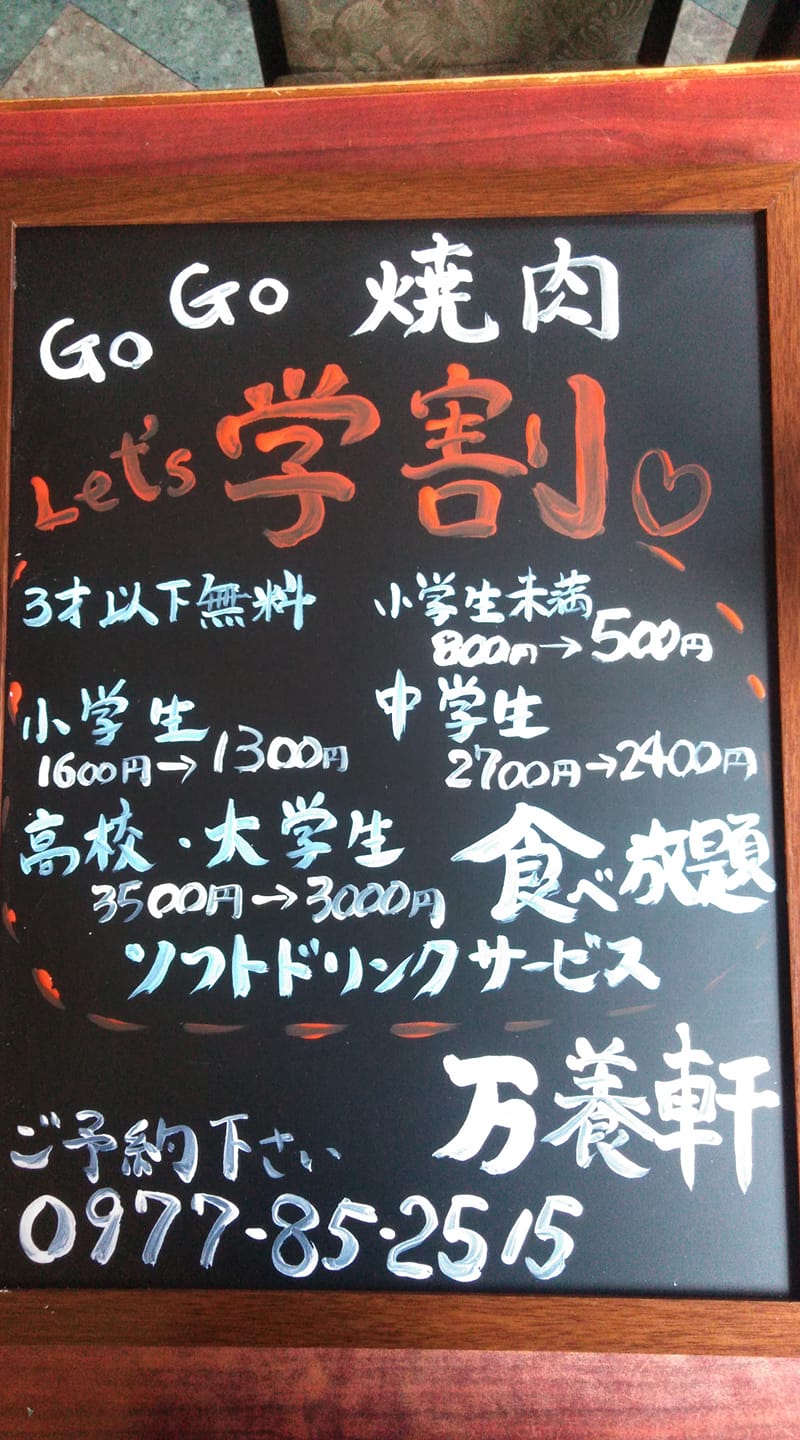 Go Go 焼肉
Let's 学割♡
3才以下無料
小学生未満
800円→500円
小学生
1600円→1300円
中学生
2700円→2400円
高校・大学生
3500円→3000円
食べ放題
ソフトドリンクサービス
万養軒
ご予約下さい
0977-85-2515